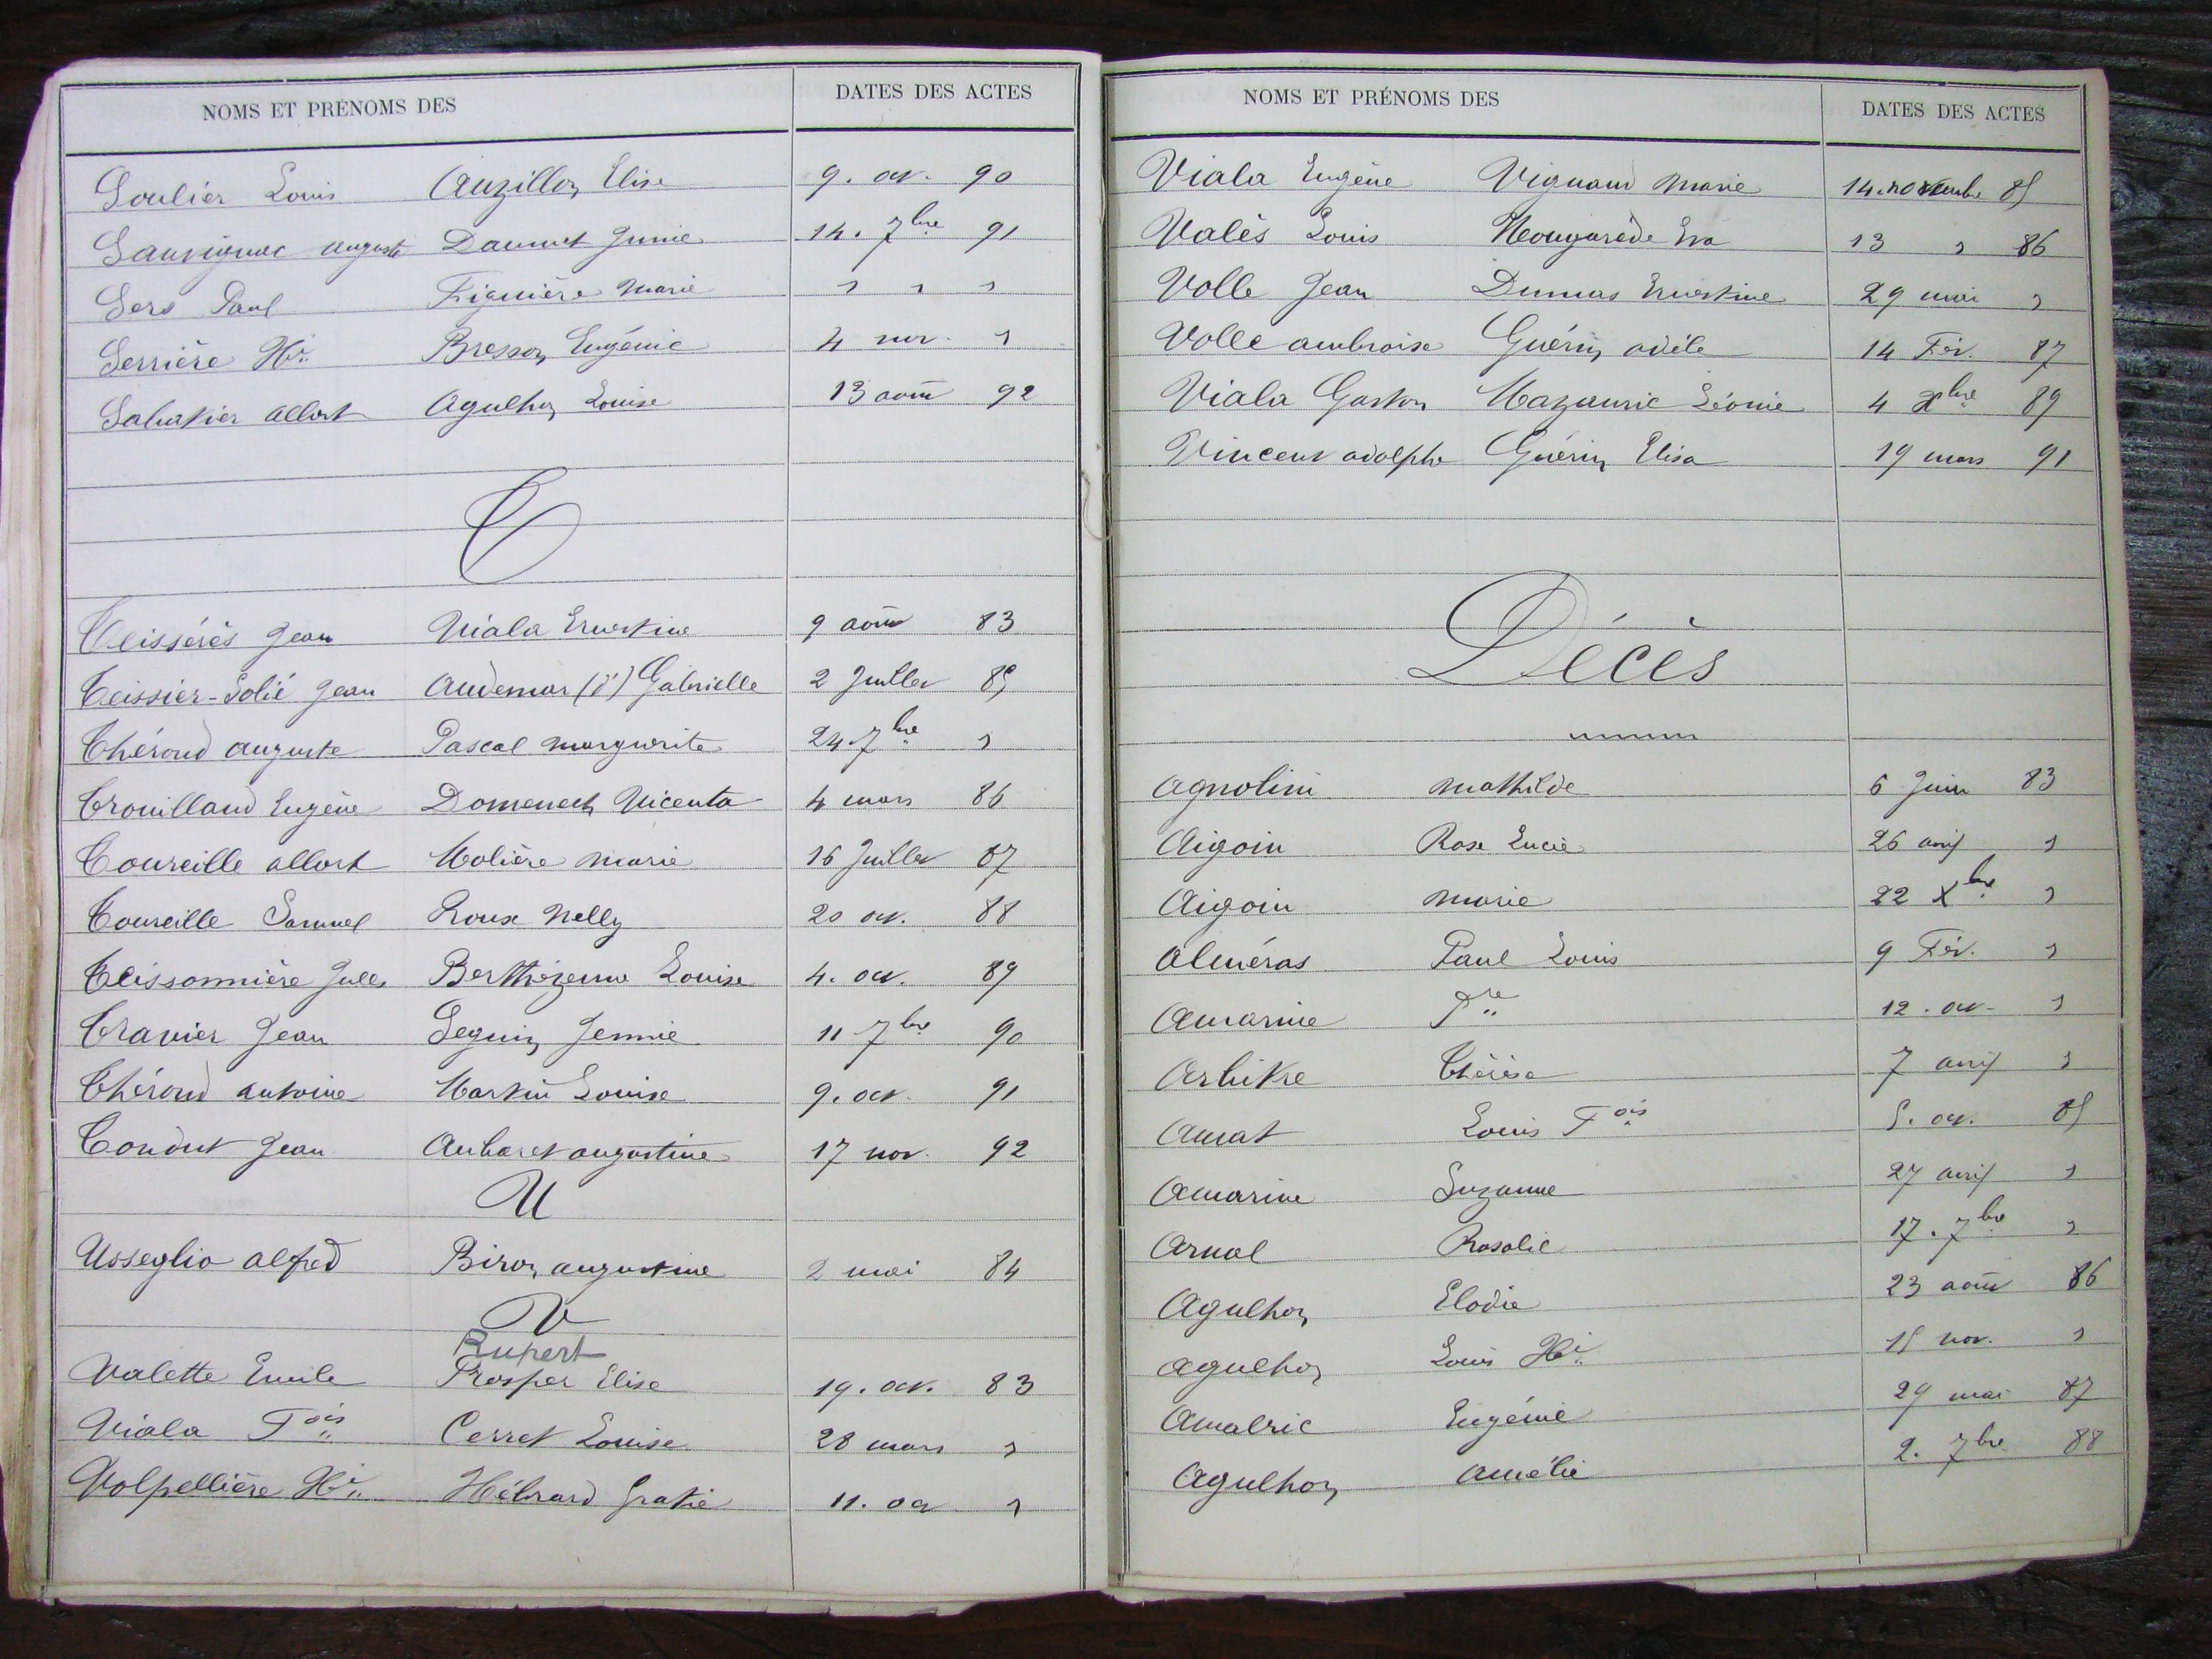 NOMS ET PRÉNOMS DES DATES DES ACTES
Soulier Louis Auzillon Elise 9. oct. 90
Sauvignac auguste Daumet Junie 14. 7bre 91
Sers Paul Figuière Marie " " "
Serrière Hri Bresson Eugénie 4 nov. "
Sabatier albert Agulhon Louise 13 août 92
T
Teissérès Jean Viala Ernestine 9 août 83
Teissier-Solié Jean Audemar (d') Gabrielle 2 Juillet 85
Théroud auguste Pascal Marguerite 24. 7bre "
Trouillaud Eugène Domenech Vicenta 4 mars 86
Toureille albert Molière Marie 16 Juillet 87
Toureille Samuel Roux Nelly 20 oct. 88
Teissonnière Jules Berthézenne Louise 4. oct. 89
Travier Jean Seguin Jennie 11 7bre 90
Théroud antoine Martin Louise 9. oct. 91
Condut Jean Aubaret augustine 17 nov. 92
U
Usseglio alfred Biron augustine 2 mai 84
V
Rupert
Valette Emile Prosper Elise 19. oct. 83
Viala Fois Cerret Louise 28 mars "
Volpellière Hri Hébrard Gratie 11. oct "
NOMS ET PRÉNOMS DES DATES DES ACTES
Viala Eugène Vignaud Marie 14. novembre 85
Valès Louis Nougarède Eva 13 " 86
Volle Jean Dumas Ernestine 29 mai "
Volle ambroise Guérin adèle 14 Fév. 87
Viala Gaston Mazauric Léonie 4 Xbre 89
Vincent adolphe Guérin Elisa 19 mars 91
Décès
Agnolini Mathilde 6 Juin 83
Aigoin Rose Lucie 26 avril "
Aigoin Marie 22 Xbre "
Alméras Paul Louis 9 Fév. "
Amarine Pre 12. oct. "
Arbitre Thérèse 7 avril "
Amat Louis Fois 5. oct. 85
Amarine Suzanne 27 avril "
Arnal Rosalie 17. 7bre "
Agulhon Elodie 23 août 86
Agulhon Louis Hri 15 nov. "
Amalric Eugénie 29 mai 87
Agulhon Amélie 2. 7bre 88